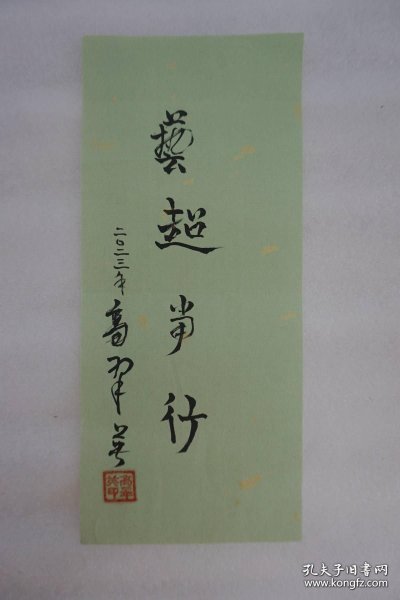 藝超当行
二〇二三年 高翠英
孔夫子旧书网
www.kongfz.com